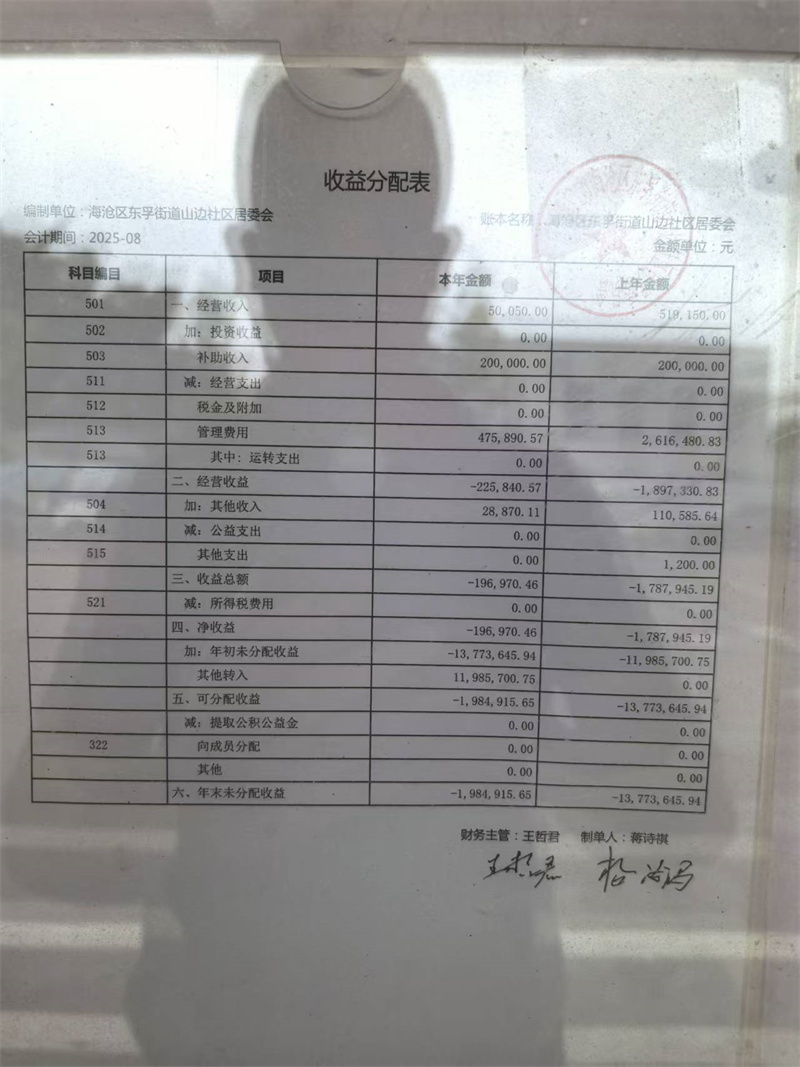 收益分配表
编制单位：海沧区东孚街道山边社区居委会 账本名称：海沧区东孚街道山边社区居委会
会计期间：2025-08 金额单位：元
科目编目 项目 本年金额 上年金额
501 一、经营收入 50,050.00 519,150.00
502 加：投资收益 0.00 0.00
503 补助收入 200,000.00 200,000.00
511 减：经营支出 0.00 0.00
512 税金及附加 0.00 0.00
513 管理费用 475,890.57 2,616,480.83
513 其中：运转支出 0.00 0.00
二、经营收益 -225,840.57 -1,897,330.83
504 加：其他收入 28,870.11 110,585.64
514 减：公益支出 0.00 0.00
515 其他支出 0.00 1,200.00
三、收益总额 -196,970.46 -1,787,945.19
521 减：所得税费用 0.00 0.00
四、净收益 -196,970.46 -1,787,945.19
加：年初未分配收益 -13,773,645.94 -11,985,700.75
其他转入 11,985,700.75 0.00
五、可分配收益 -1,984,915.65 -13,773,645.94
减：提取公积公益金 0.00 0.00
322 向成员分配 0.00 0.00
其他 0.00 0.00
六、年末未分配收益 -1,984,915.65 -13,773,645.94
财务主管：王哲君 制单人：蒋诗祺